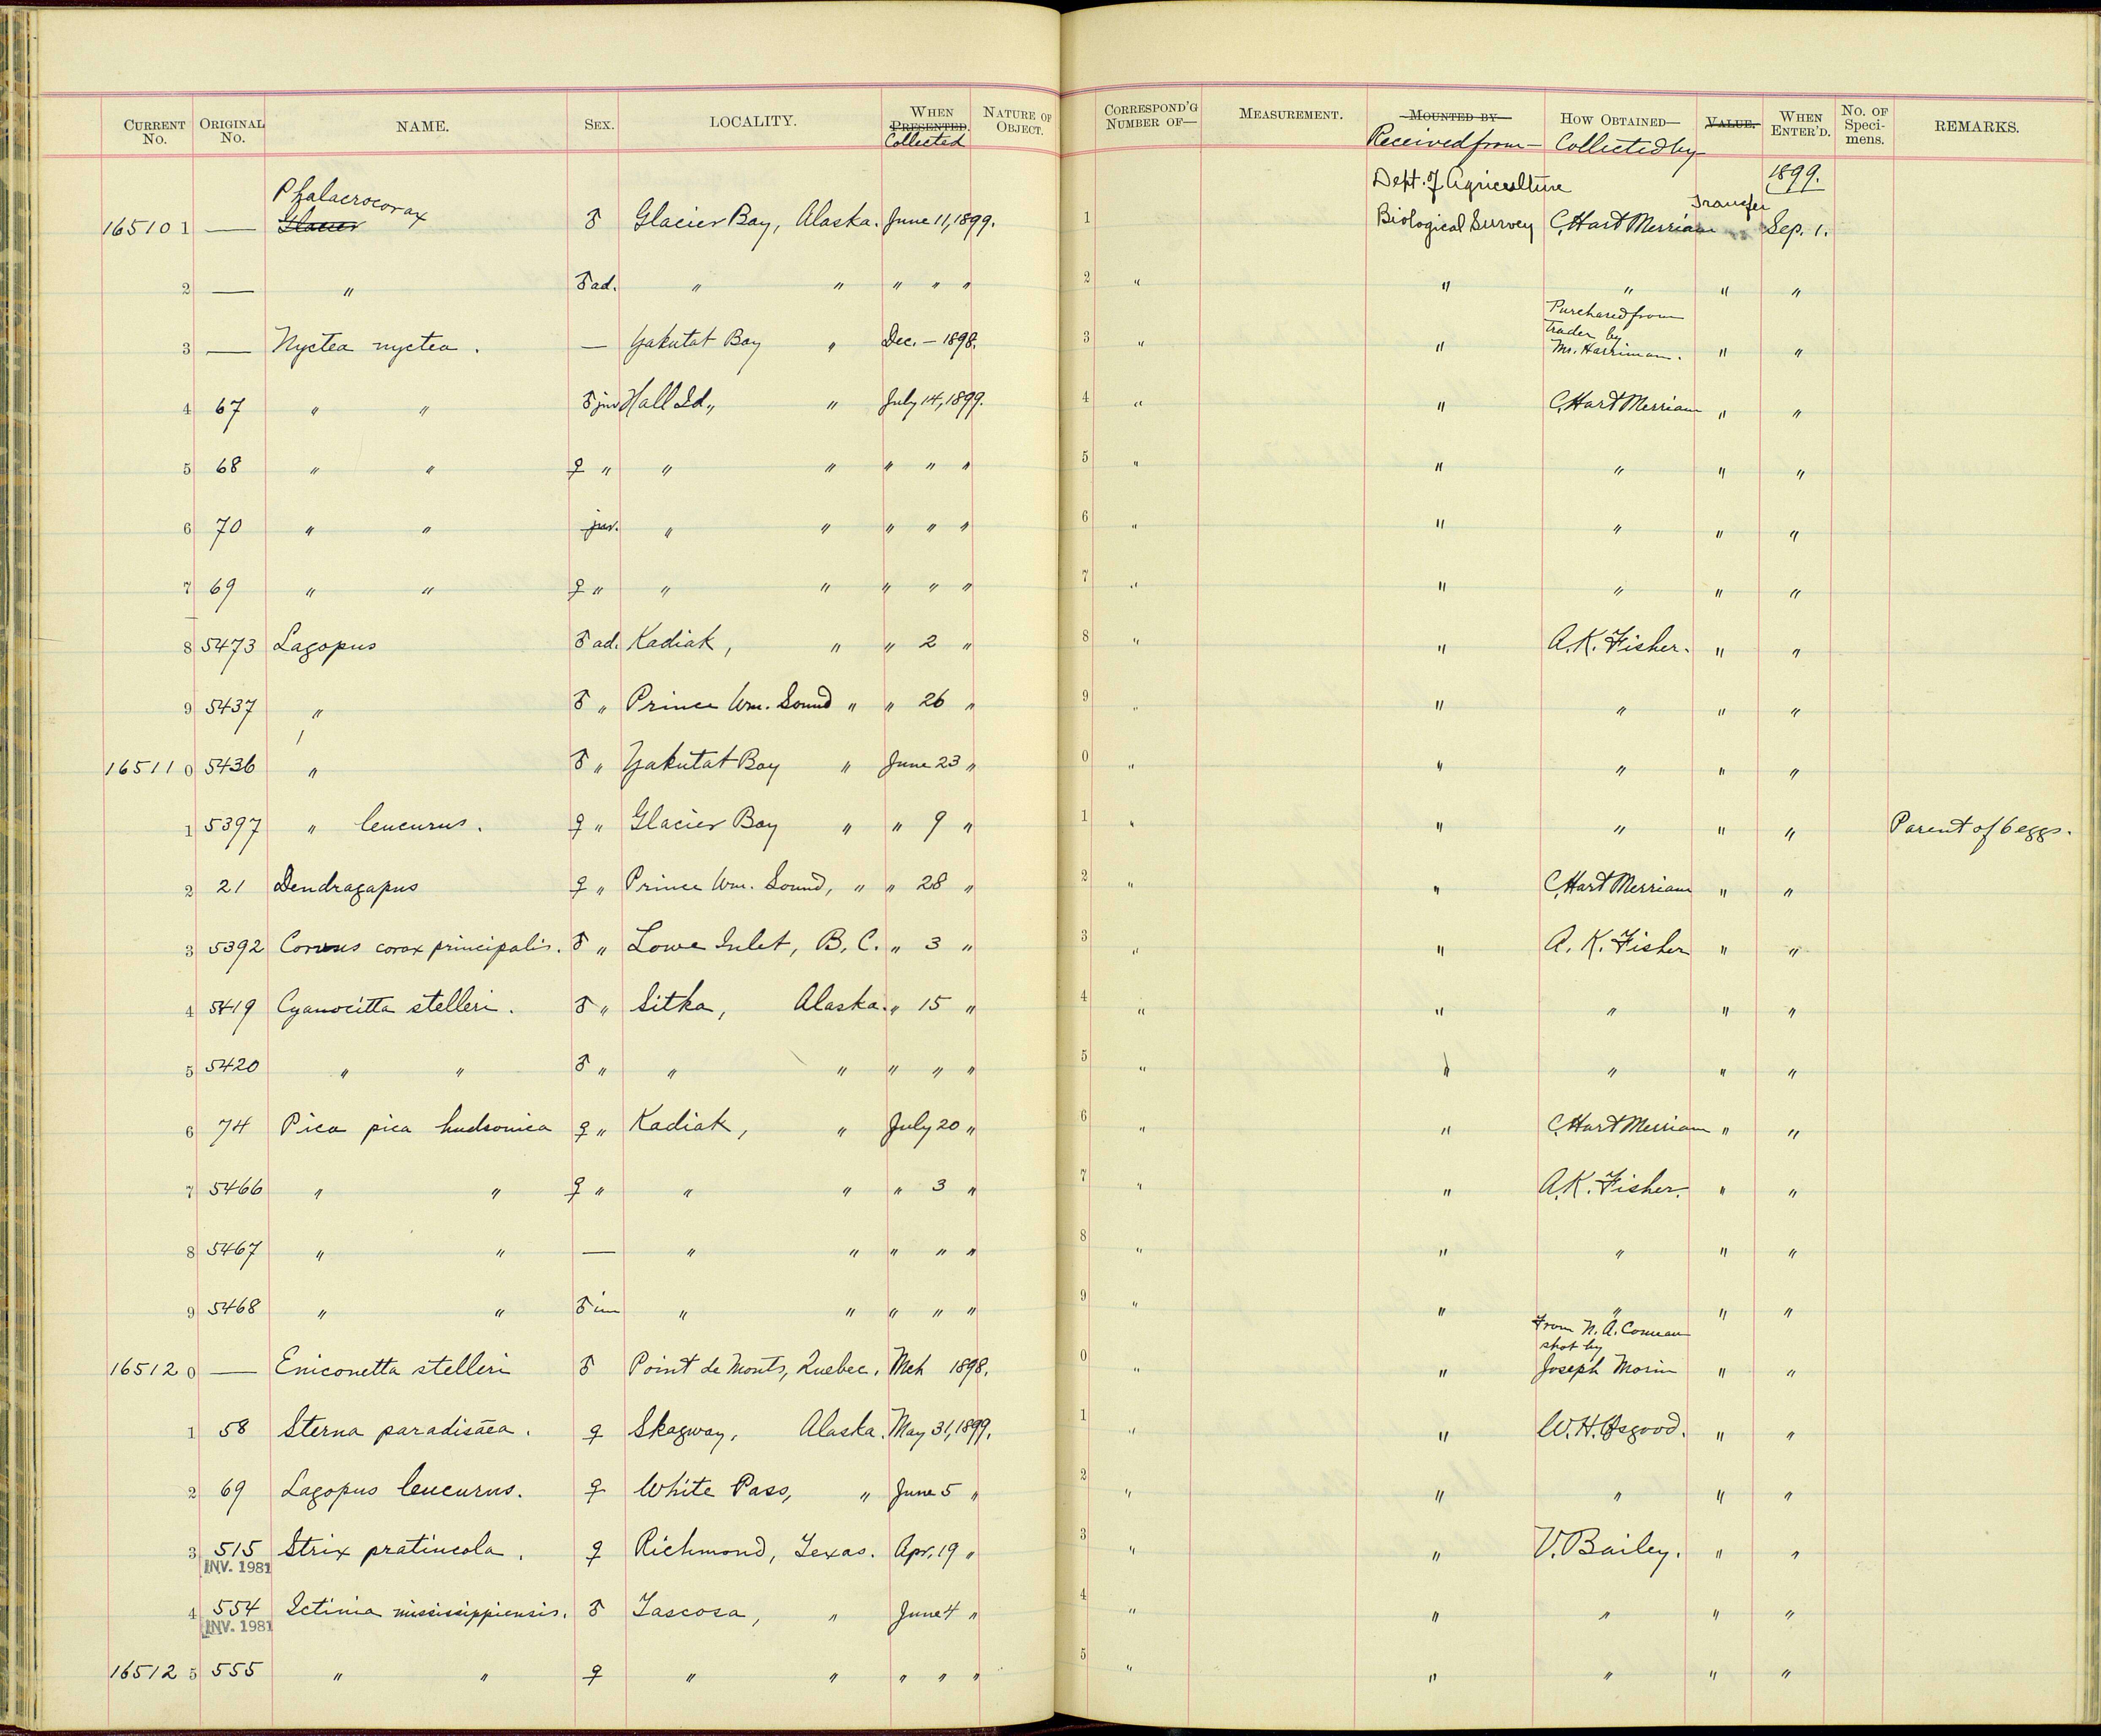 CURRENT No. ORIGINAL No. NAME. SEX. LOCALITY. WHEN PRESENTED. Collected NATURE OF OBJECT. CORRESPOND'G NUMBER OF— MEASUREMENT. MOUNTED BY— Received from— HOW OBTAINED— Collected by VALUE. WHEN ENTER'D. No. OF Speci-mens. REMARKS.
Dept. of Agriculture 1899.
Phalacrocorax Transfer
165101 — Glacier ♂ Glacier Bay, Alaska. June 11, 1899. 1 Biological Survey C. Hart Merriam Sep. 1.
2 — " ♂ ad. " " " " " 2 " " " " "
Purchased from
trader by
3 — Nyctea nyctea. — Yakutat Bay " Dec. – 1898. 3 " " Mr. Harriman. " "
4 67 " " ♂ juv Hall Id., " July 14, 1899. 4 " " C. Hart Merriam " "
5 68 " " ♀ " " " " " " 5 " " " " "
6 70 " " juv. " " " " " 6 " " " " "
7 69 " " ♀ " " " " " " 7 " " " " "
8 5473 Lagopus ♂ ad. Kadiak, " " 2 " 8 " " A. K. Fisher. " "
9 5437 " ♂ " Prince Wm. Sound " " 26 " 9 " " " " "
165110 5436 " ♂ " Yakutat Bay " June 23 " 0 " " " " "
1 5397 " leucurus. ♀ " Glacier Bay " " 9 " 1 " " " " " Parent of 6 eggs.
2 21 Dendragapus ♀ " Prince Wm. Sound, " " 28 " 2 " " C. Hart Merriam " "
3 5392 Corvus corax principalis. ♂ " Lowe Inlet, B. C. " 3 " 3 " " A. K. Fisher " "
4 5419 Cyanocitta stelleri. ♂ " Sitka, Alaska. " 15 " 4 " " " " "
5 5420 " " ♂ " " " " " " 5 " " " " "
6 74 Pica pica hudsonica ♀ " Kadiak, " July 20 " 6 " " C. Hart Merriam " "
7 5466 " " ♀ " " " " 3 " 7 " " A. K. Fisher. " "
8 5467 " " — " " " " " 8 " " " " "
9 5468 " " ♂ im " " " " " 9 " " " " "
From N. A. Comeau
shot by
165120 — Eniconetta stelleri ♂ Point de Monts, Quebec. Mch 1898. 0 " " Joseph Morin " "
1 58 Sterna paradisæa. ♀ Skagway, Alaska. May 31, 1899. 1 " " W. H. Osgood. " "
2 69 Lagopus leucurus. ♀ White Pass, " June 5 " 2 " " " " "
3 515 Strix pratincola. ♀ Richmond, Texas. Apr. 19 " 3 " " V. Bailey. " "
INV. 1981
4 554 Ictinia mississippiensis. ♂ Tascosa, " June 4 " 4 " " " " "
INV. 1981
165125 555 " " ♀ " " " " " 5 " " " " "